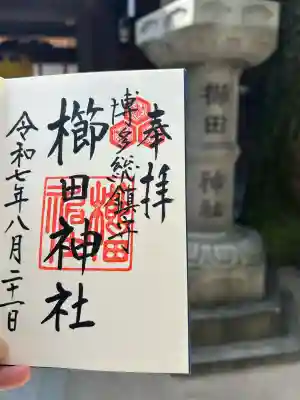 奉拝
博多総鎮守
櫛田神社
令和七年八月二十一日
櫛田
神社